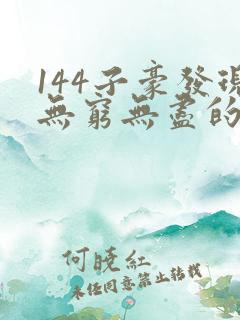 144子豪發現
無窮無盡的
何曉紅
未經同意禁止轉載